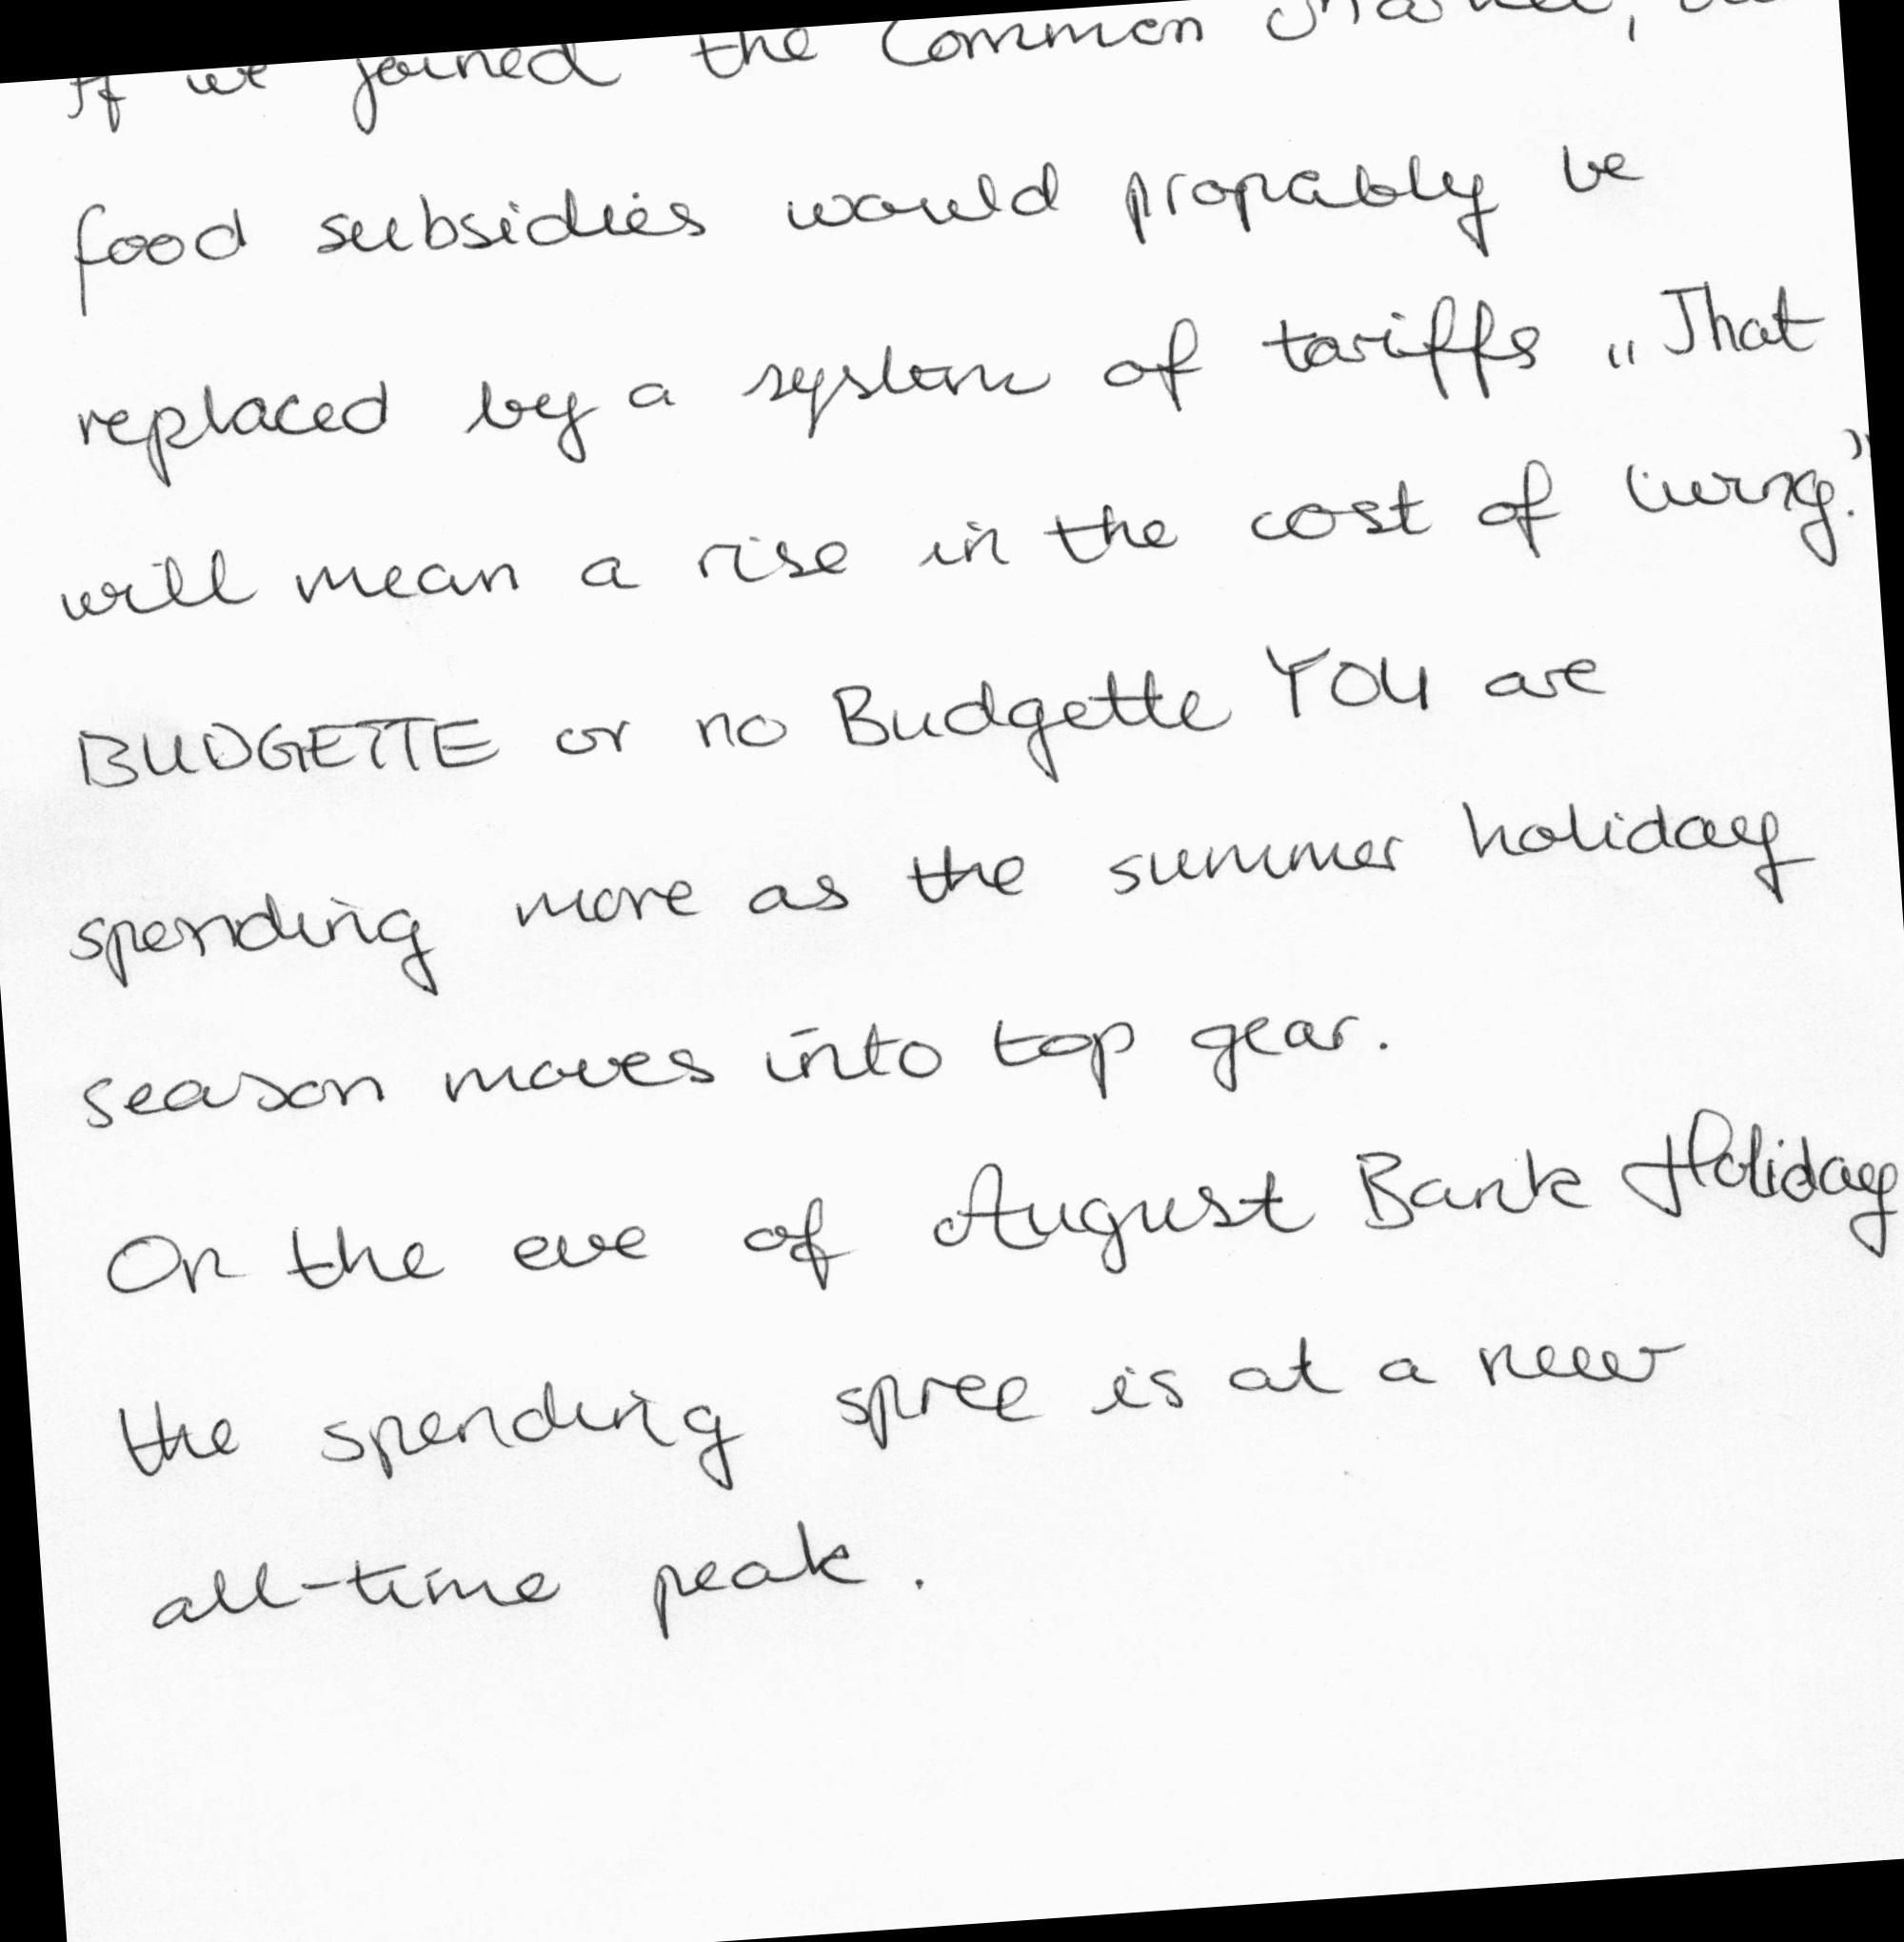 If we joined the Common Market,
food subsidies would propably be
replaced by a system of tariffs „That
will mean a rise in the cost of living.”
BUDGETTE or no Budgette YOU are
spending more as the summer holiday
season moves into top gear.
On the eve of August Bank Holiday
the spending spree is at a new
all-time peak.